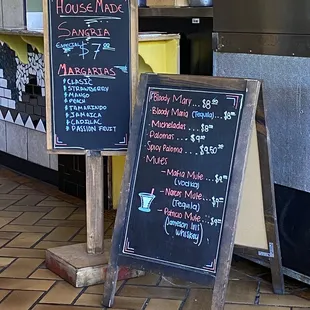 House Made
Sangria
Especial $7.00
Margarias
Classic
Strawberry
Mango
Peach
Tamarindo
Jamaica
Cadillac
Passion Fruit
Bloody Mary... $8
Bloody Maria (Tequila)... $8
Micheladas... $8
Palomas... $9
Spicy Paloma... $9.50
Mules
- Mafia Mule... $9
(vodka)
- Narcos Mule... $9
(Tequila)
- Patricio Mule...
(Jameson Irish
Whiskey)